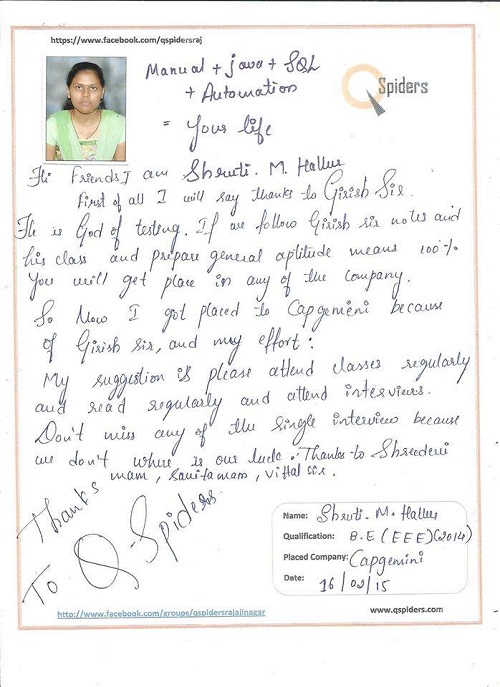 https://www.facebook.com/qspidersraj
Manual + java + SQL
+ Automation
= Your life
QSpiders
Hi Friends, I am Shruti. M. Hallur
First of all I will say thanks to Girish Sir.
He is God of testing. If we follow Girish sir notes and
his class and prepare general aptitude means 100%
You will get place in any of the company.
So Now I got placed to Capgemini because
of Girish sir, and my effort.
My suggestion is please attend classes regularly
and read regularly and attend interviews.
Don't miss any of the single interview because
we don't where is our luck. Thanks to Shreedevi
mam, Savita mam, Vittal sir.
Thanks
To Q-Spiders.
Name: Shruti. M. Hallur
Qualification: B.E (EEE) (2014)
Placed Company: Capgemini
Date: 16/02/15
http://www.facebook.com/groups/qspidersrajajinagar
www.qspiders.com